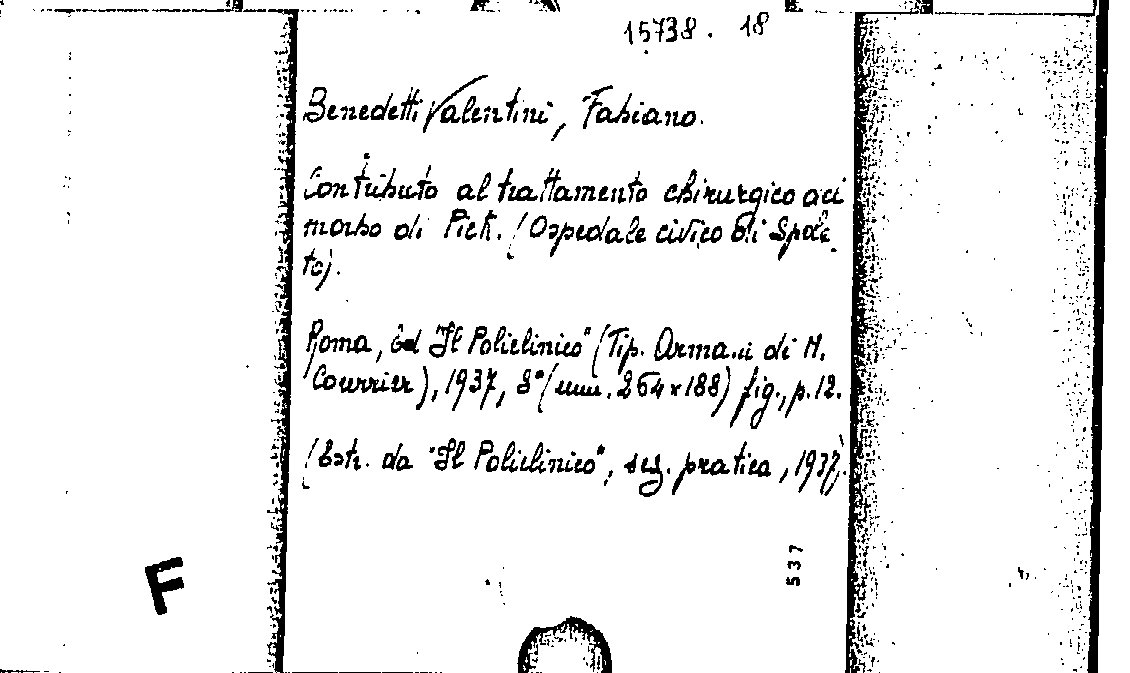 15738. 18
Benedetti Valentini, Fabiano.
Contributo al trattamento chirurgico del
morbo di Pick. (Ospedale civico di Spole_
to).
Roma, Ed "Il Policlinico" (Tip. Armani di M.
Courrier), 1937, 8° (mm. 264x188) fig., p.12.
(Estr. da "Il Policlinico", sez. pratica, 1937).
537
F